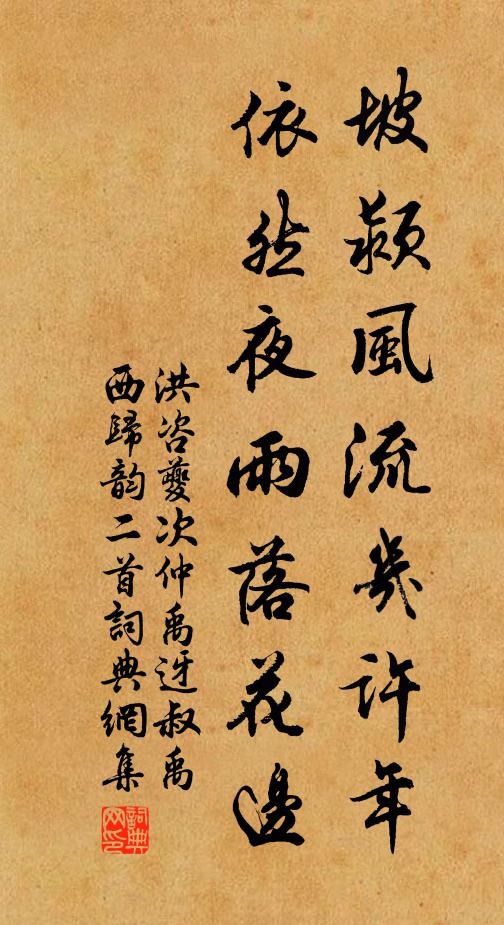 坡潁風流幾許年
依然夜雨落花邊
洪咨夔次仲禹迓叔禹
西歸韵二首詞典網集
詞典网印